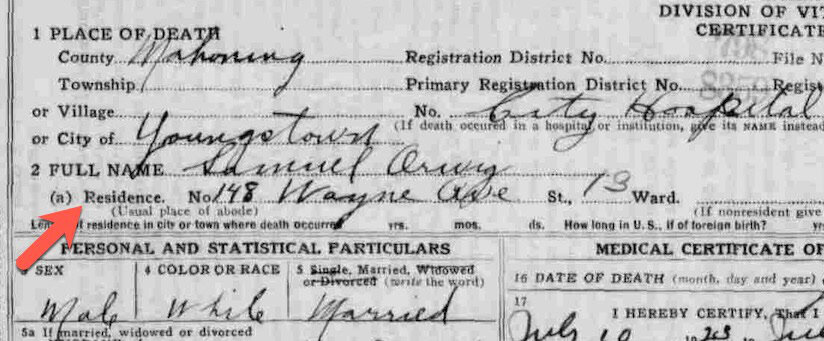 DIVISION OF VIT
1 PLACE OF DEATH CERTIFICATE
County Mahoning Registration District No. File N
Township Primary Registration District No. 8359 Regist
or Village No. City Hospital
or City of Youngstown (If death occured in a hospital or institution, give its NAME instead
2 FULL NAME Samuel Orwig
(a) Residence. No. 148 Wayne Ave St., 13 Ward.
(Usual place of abode) (If nonresident give
of residence in city or town where death occurred yrs. mos. ds. How long in U. S., if of foreign birth? yr
PERSONAL AND STATISTICAL PARTICULARS MEDICAL CERTIFICATE OF
3 SEX 4 COLOR OR RACE 5 Single, Married, Widowed or Divorced (write the word) 16 DATE OF DEATH (month, day and year)
Male White Married 17 I HEREBY CERTIFY, That I
5a If married, widowed or divorced July 1923